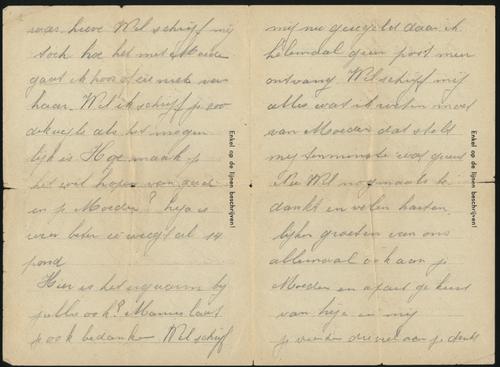 was, lieve Wil schrijf mij
toch hoe het met Moeder
gaat ik hoor niets van
haar. Wil ik schrijf je zoo
dikwijls als het mogen
lijk is Hoe maak je
het wil hopen van goed
en je Moeder? is
weer beter weegt al 14
pond
Hier is het warm bij
jullie ook? Mamie laat
je ook bedanken Wil schrijf
Enkel op de lijnen beschrijven!
mij nu geregeld daar ik
helemaal geen post meer
ontvang Wil schrijf mij
alles wat ik weten moet
van Moeder dat stelt
mij tenminste wat gerust
Nu Wil nogmaals be
dankt en velen harten
lijke groeten van ons
allemaal ook aan je
Moeder en apart gekust
van en mij
je vriendin die veel aan je denkt
Enkel op de lijnen beschrijven!